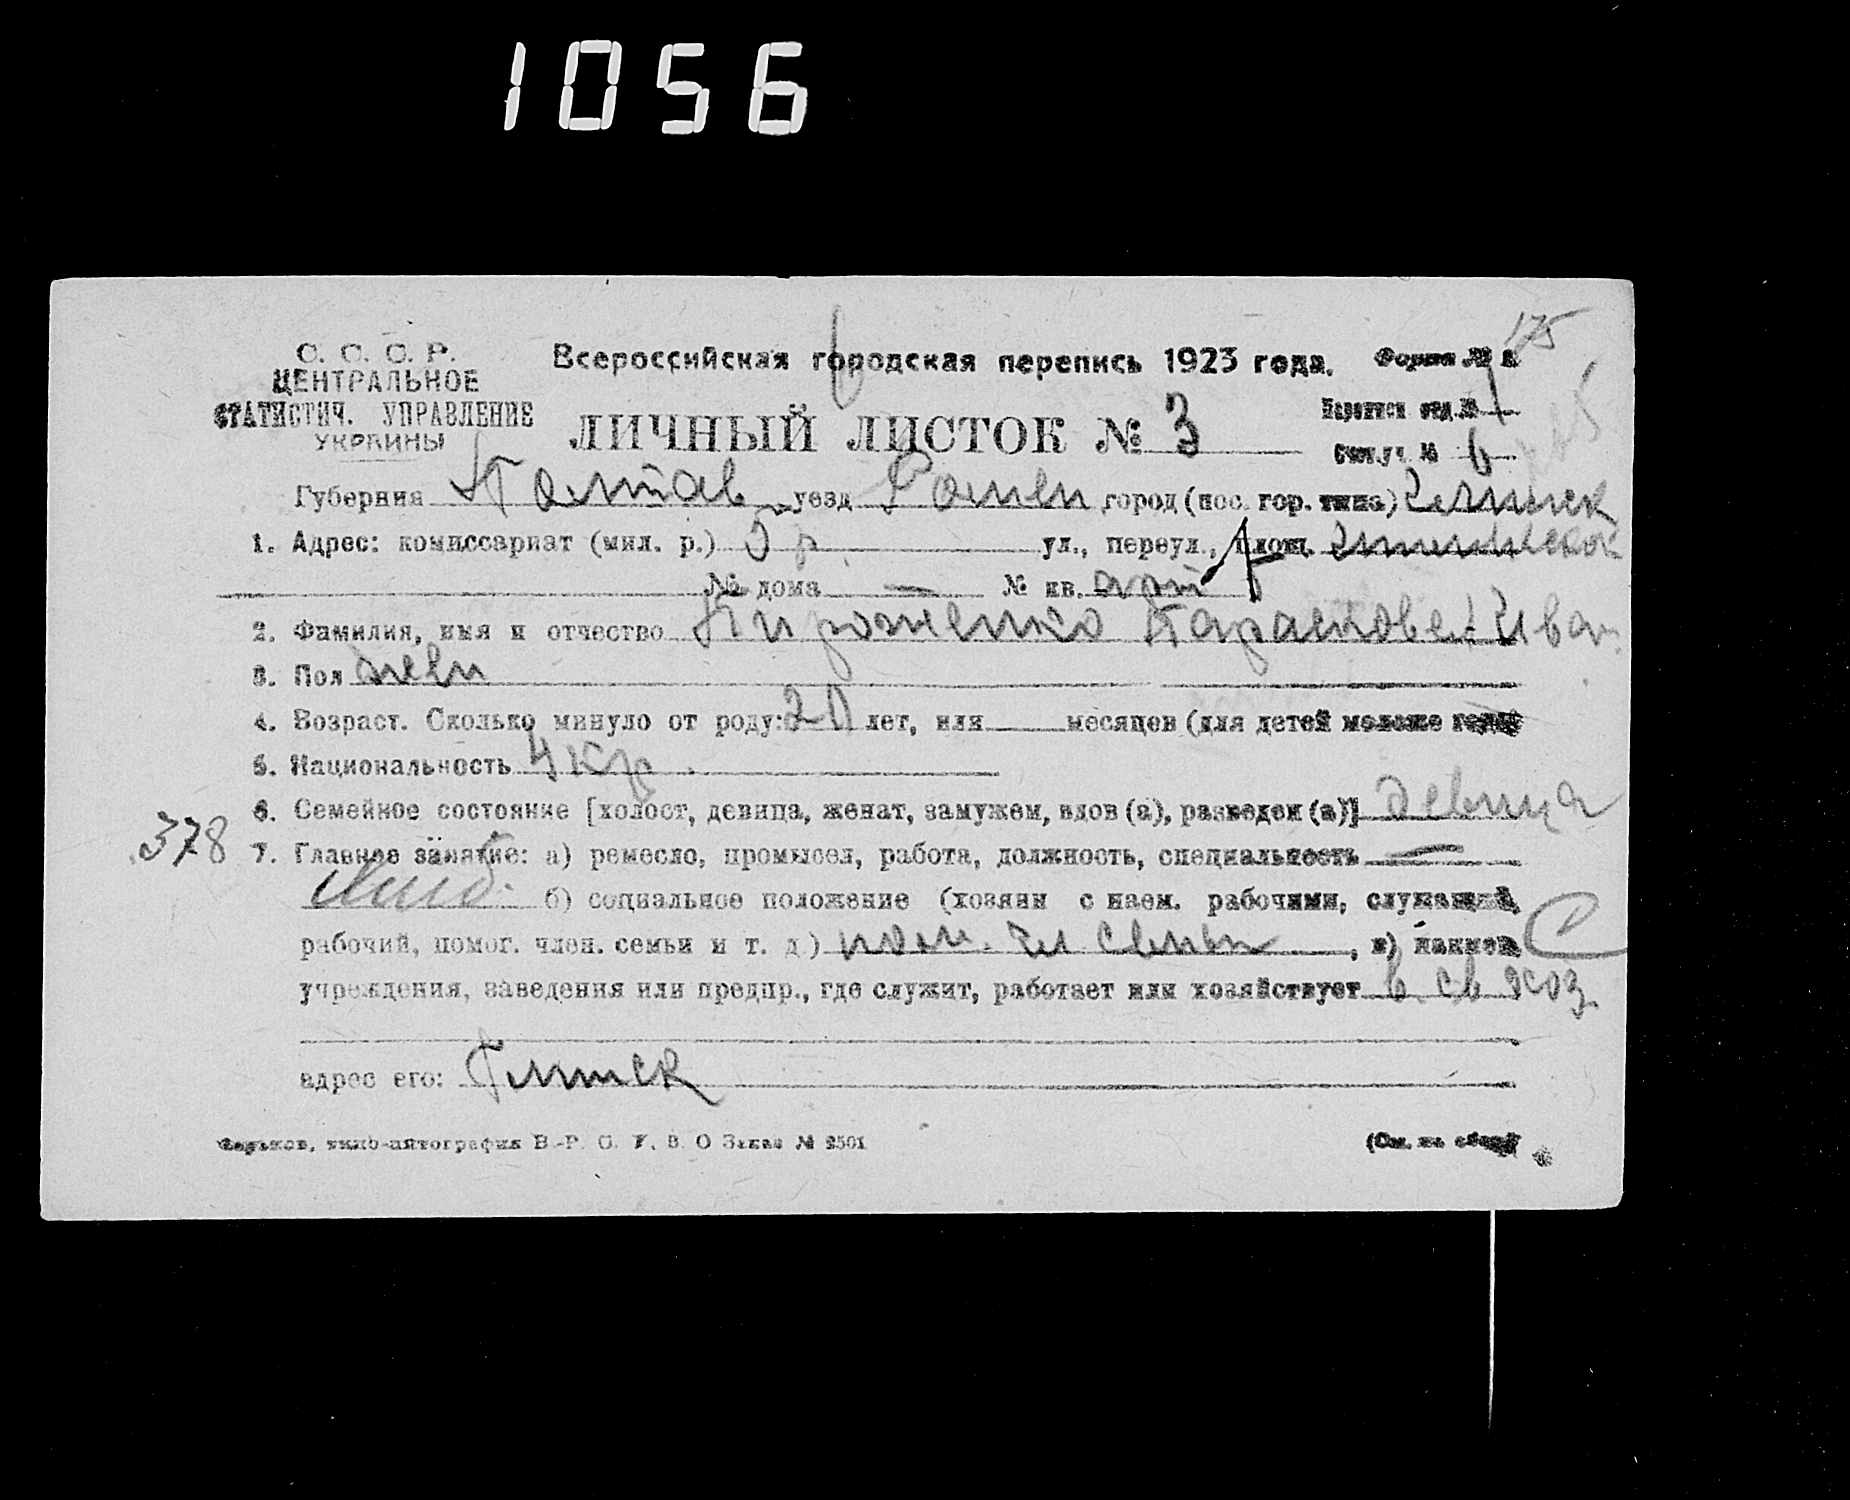 1056
175
С. С. С. Р.
ЦЕНТРАЛЬНОЕ
СТАТИСТИЧ. УПРАВЛЕНИЕ
УКРАИНЫ
Всероссийская городская перепись 1923 года.
Форма №
ЛИЧНЫЙ ЛИСТОК № 3
Переписн отд. № 1
Счетн. уч. № 6
Губерния Полтав уезд Ромен город (пос. гор. типа) Глинск
1. Адрес: комиссариат (мил. р.) 5 р ул., переул., площ.
№ дома — № кв.
2. Фамилия, имя и отчество Пироженко Парасковея Иван.
3. Пол жен
4. Возраст. Сколько минуло от роду: 20 лет, или месяцев (для детей моложе года)
5. Национальность Укр
6. Семейное состояние [холост, девица, женат, замужем, вдов (а), разведен (а)] девица
378 7. Главное занятие: а) ремесло, промысел, работа, должность, специальность —
б) социальное положение (хозяин с наем. рабочими, служащий,
рабочий, помог. член. семьи и т. д.) пом. чл семьи, в) наимен. С
учреждения, заведения или предпр., где служит, работает или хозяйствует в св хоз.
адрес его: Глинск
Харьков, типо-литография В.-Р. С. У. В. О Заказ № 2501
(См. на обор.)